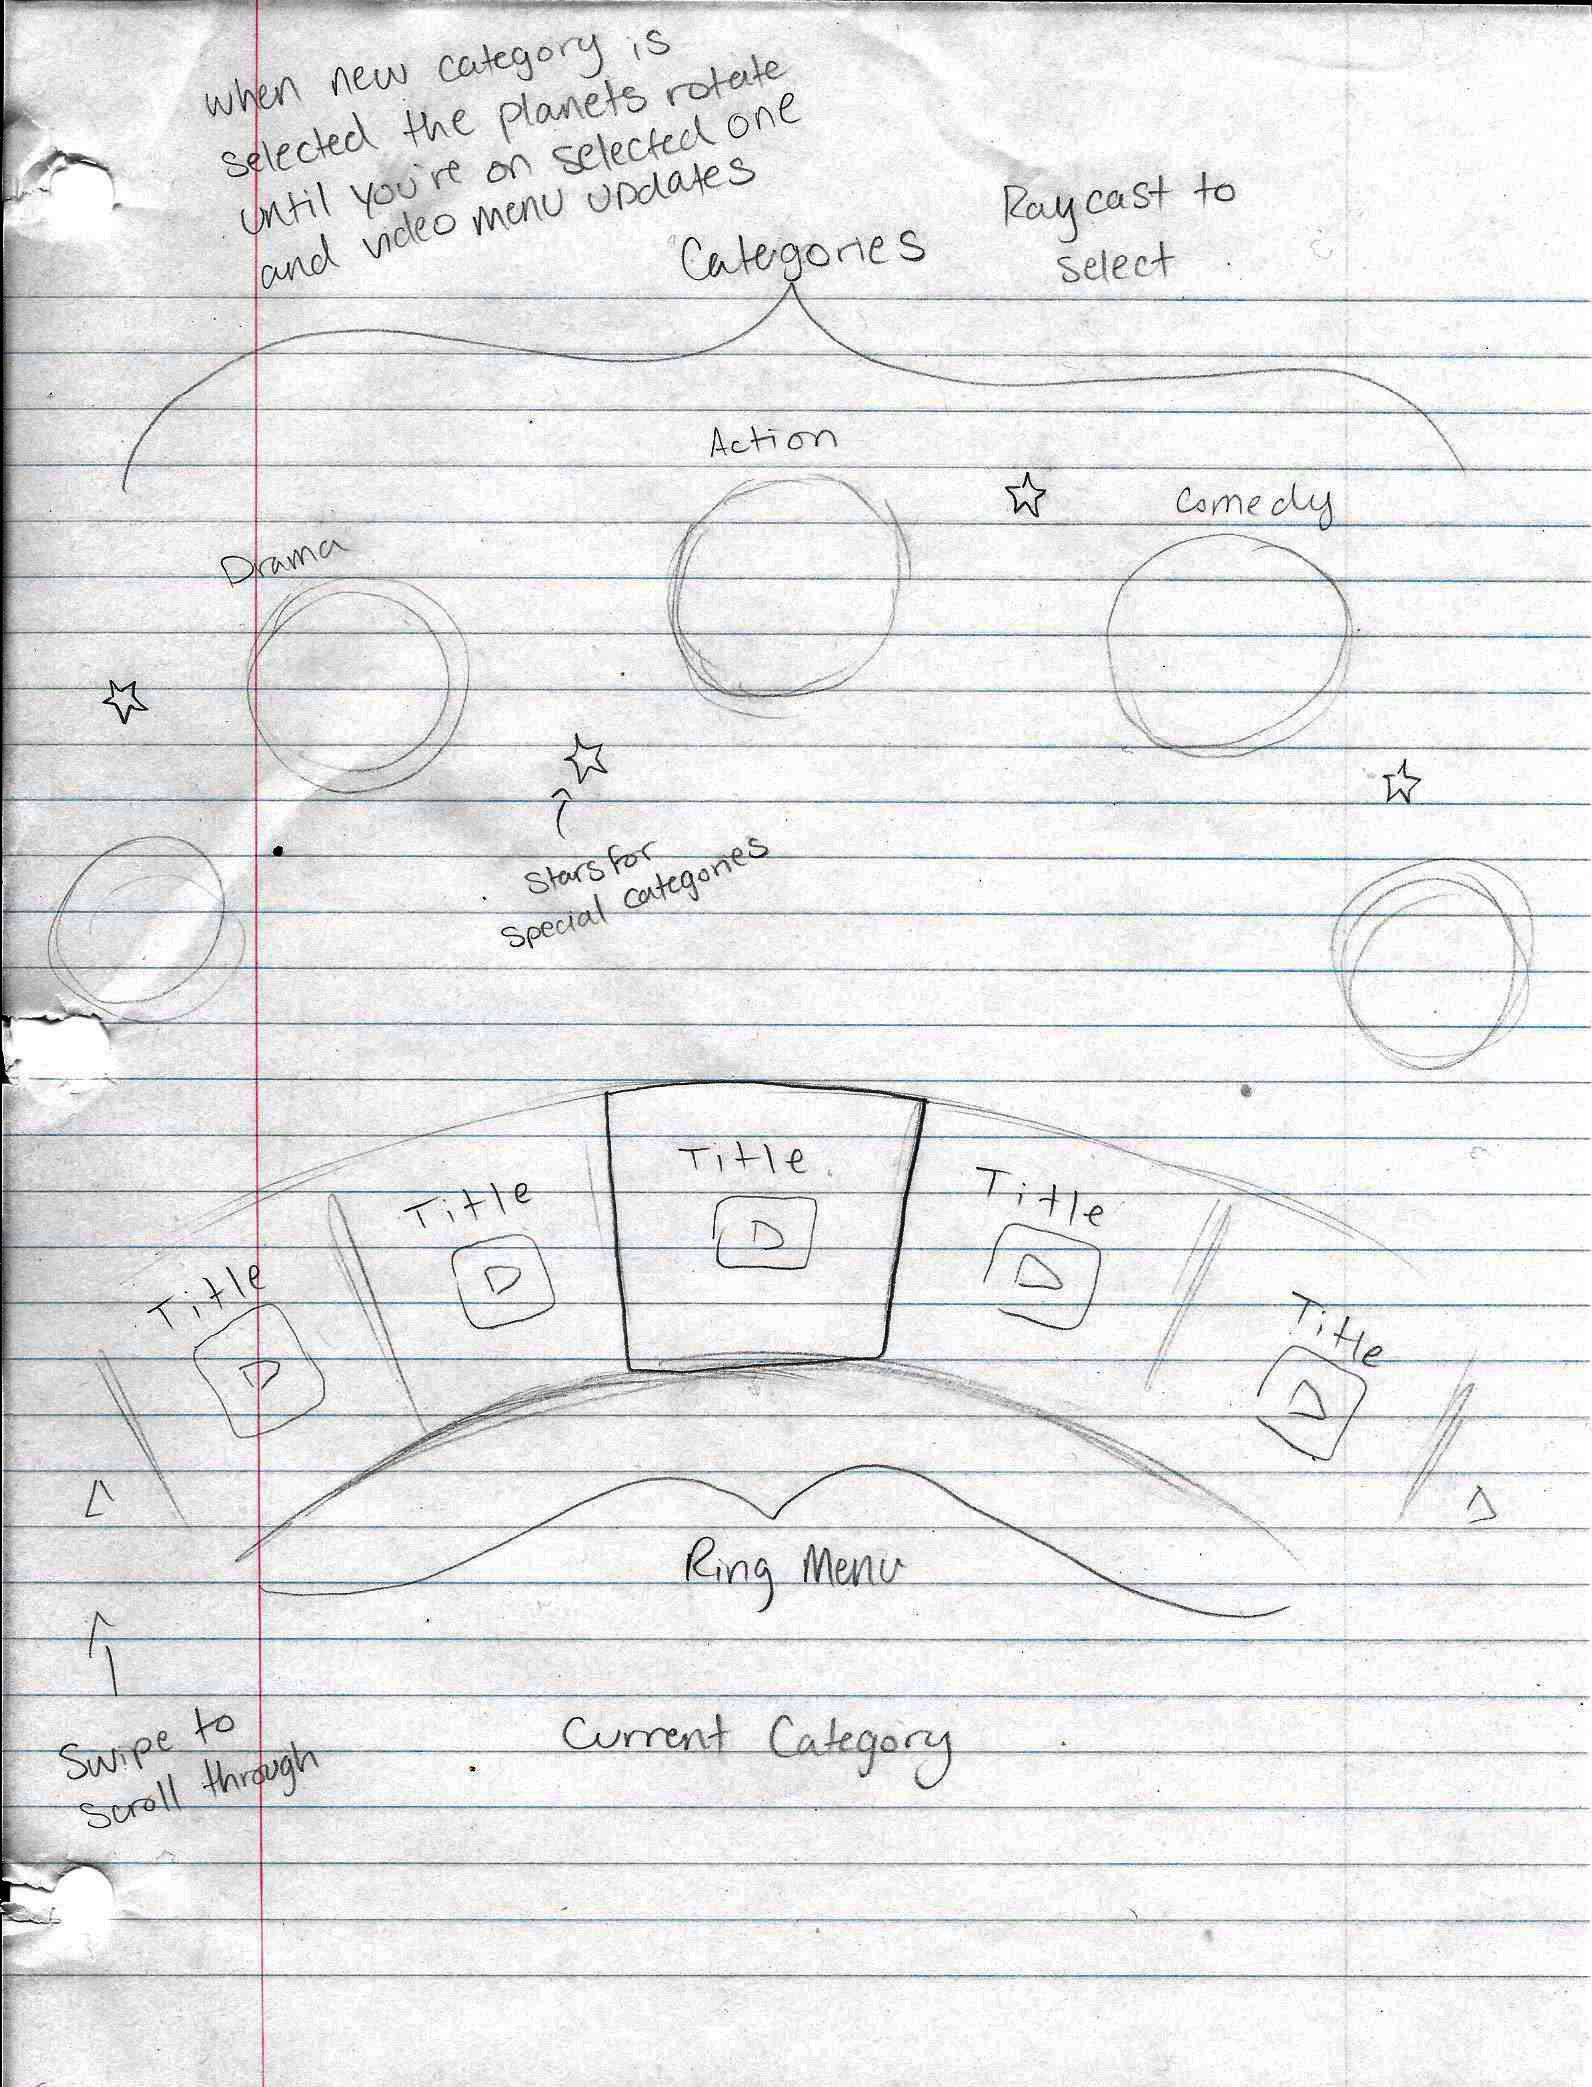 when new category is
selected the planets rotate
until you're on selected one
and video menu updates
Raycast to
select
Categories
Action
Comedy
Drama
Stars for
special categories
Title
Title
Title
Title
Title
Ring Menu
Swipe to
scroll through
Current Category